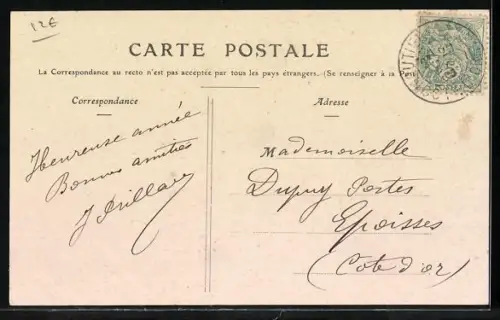 12€
CARTE POSTALE
La Correspondance au recto n'est pas acceptée par tous les pays étrangers. (Se renseigner à la Post
Correspondance
Heureuse année
Bonnes amitiés
Adresse
Mademoiselle
Dupuy Postes
Epoisses
(Cote d'or)